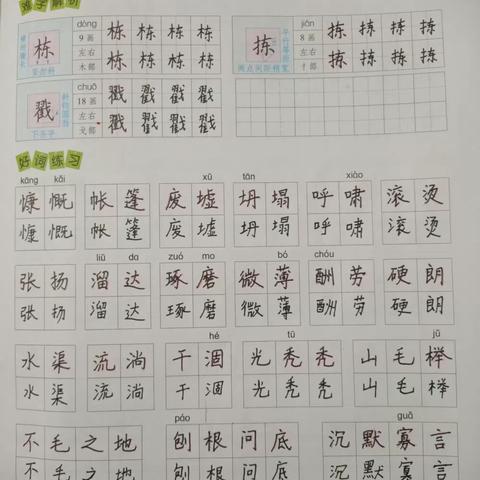 难字解析
栋 dòng 9画 左右 木部 栋 栋 栋 栋
栋 栋 栋 栋
拣 jiǎn 8画 左右 扌部 拣 拣 拣 拣
两点间距稍宽 拣 拣 拣 拣
戳 chuō 18画 左右 戈部 戳 戳 戳 戳
下齐平 戳 戳 戳 戳
好词练习
kāng kǎi xū tān xiào
慷慨 帐篷 废墟 坍塌 呼啸 滚烫
慷慨 帐篷 废墟 坍塌 呼啸 滚烫
liū da zuó mo bó chóu
张扬 溜达 琢磨 微薄 酬劳 硬朗
张扬 溜达 琢磨 微薄 酬劳 硬朗
hé tū jǔ
水渠 流淌 干涸 光秃秃 山毛榉
水渠 流淌 干涸 光秃秃 山毛榉
páo guǎ
不毛之地 刨根问底 沉默寡言
不毛之地 刨根问底 沉默寡言